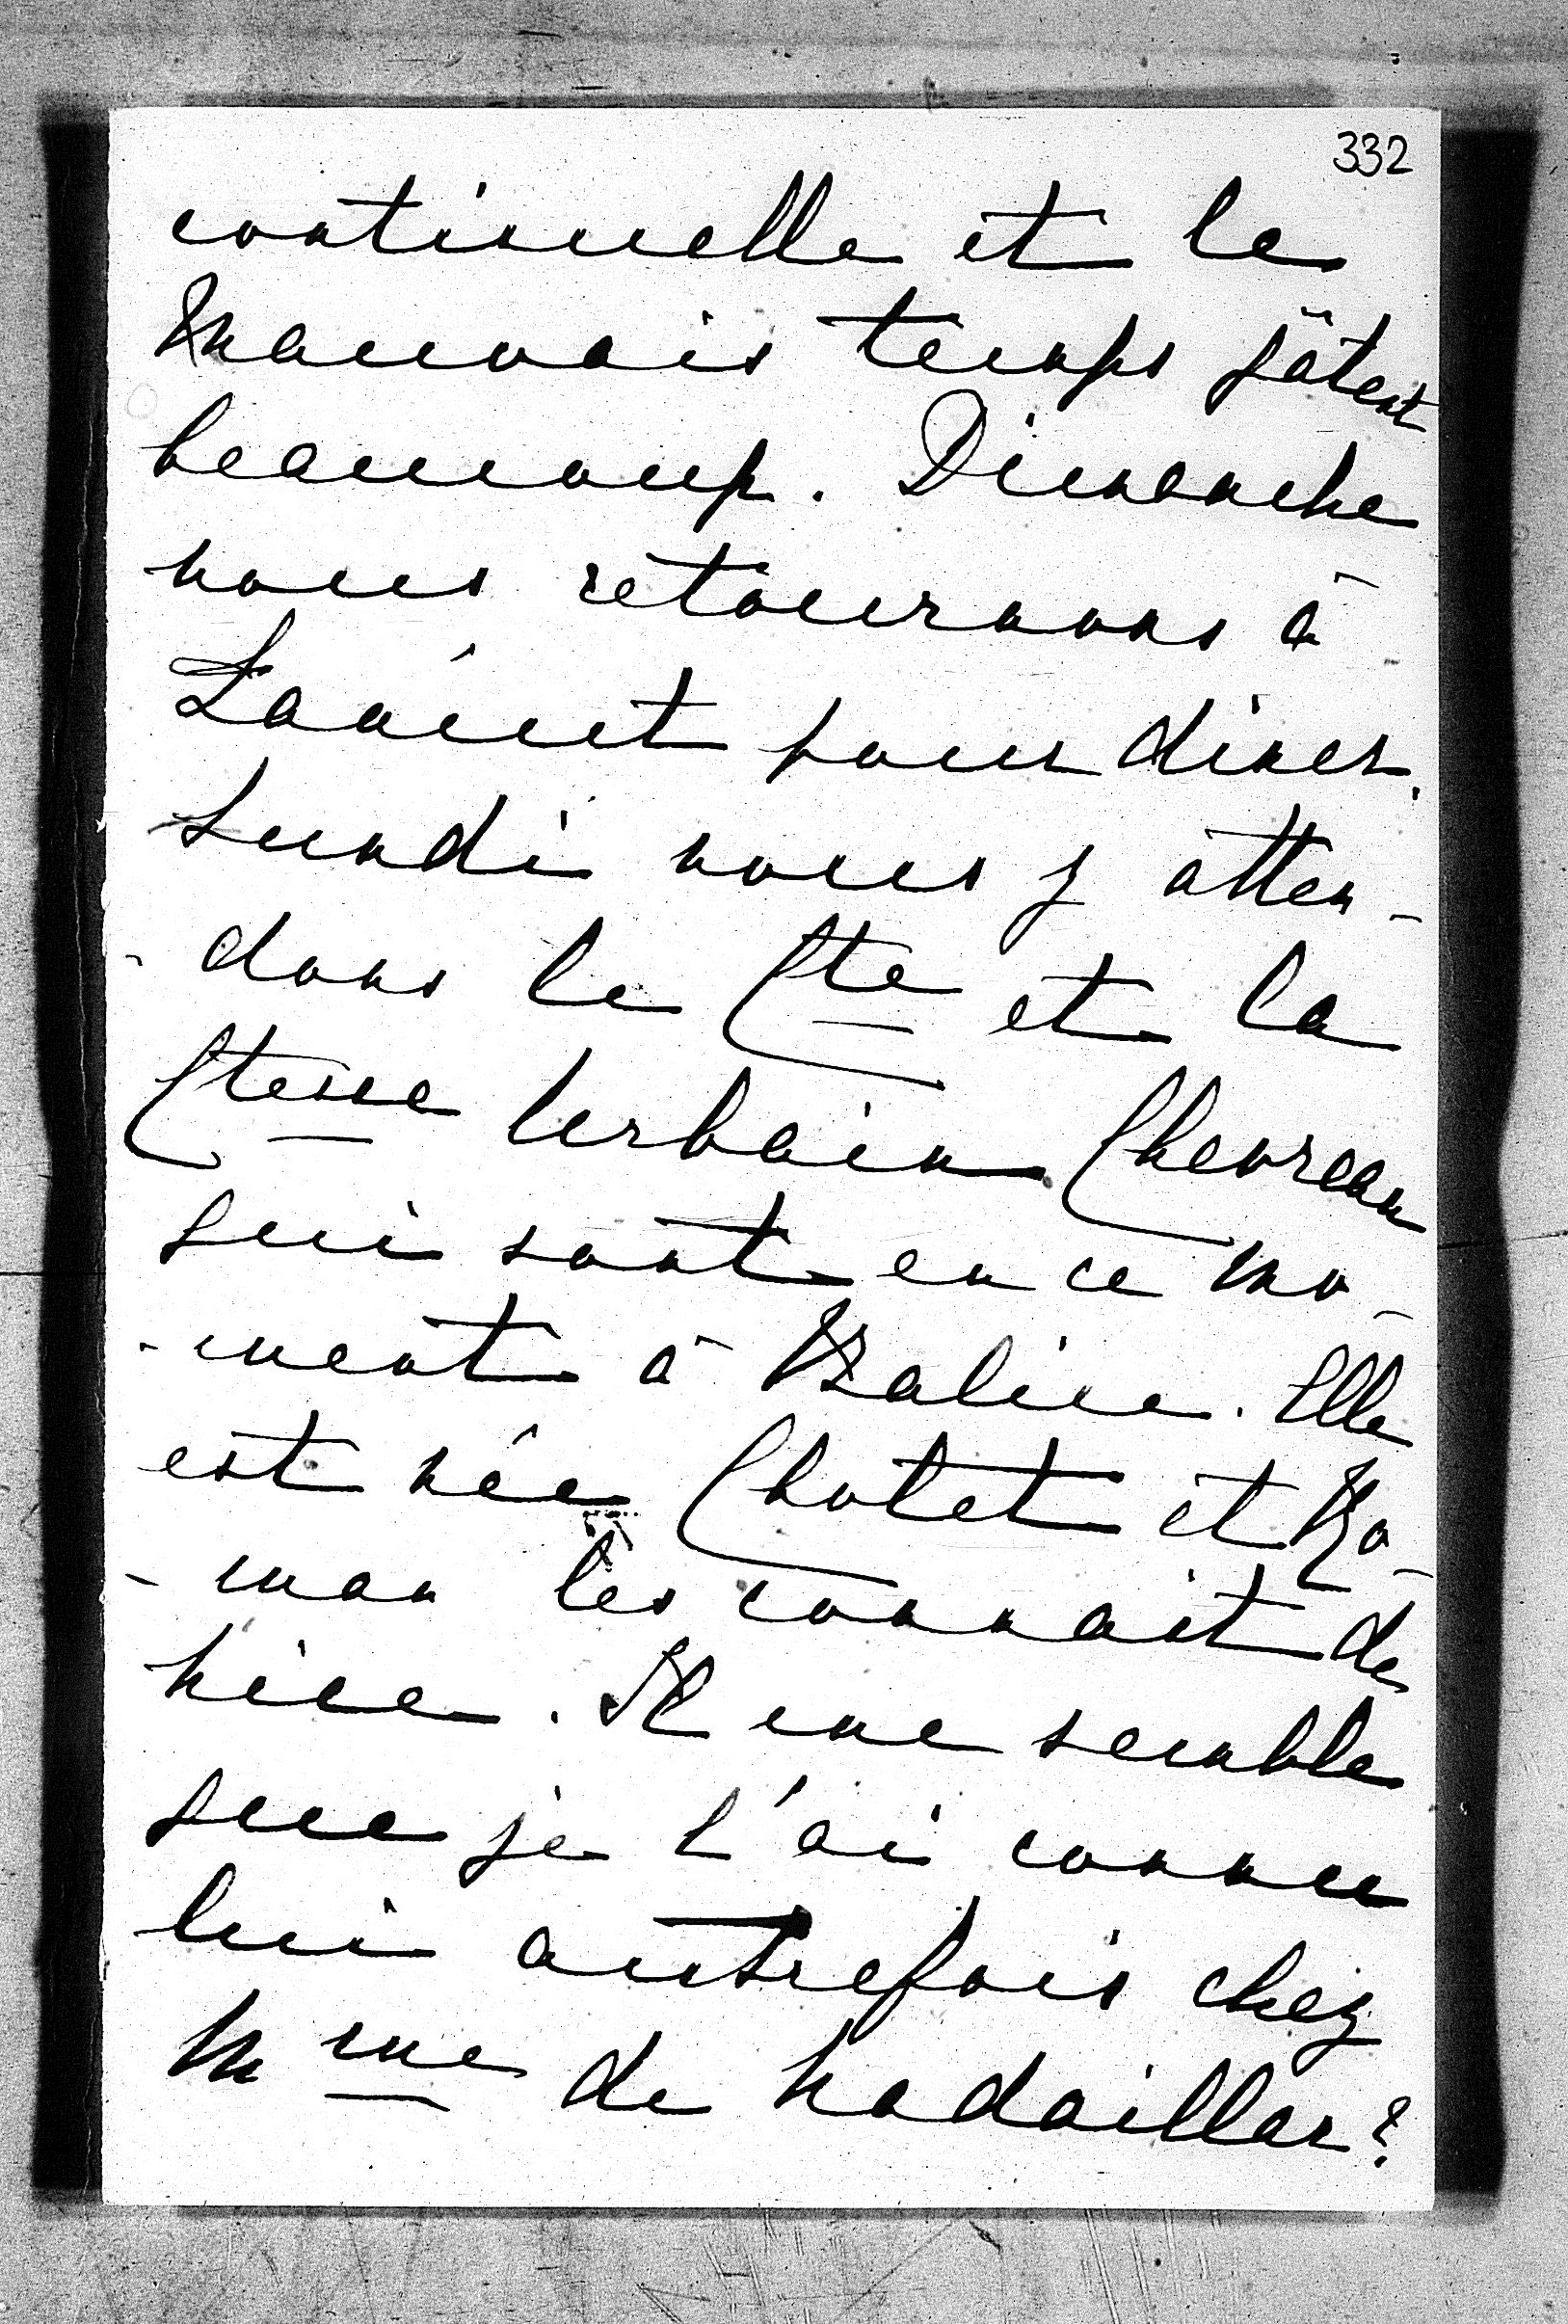 332
continuelle et le
mauvais temps gâtent
beaucoup. Dimanche
nous retournons à
Łańcut pour diner.
Lundi nous y atten-
-dons le Cte et la
Ctesse Urbain Chevreau
qui sont en ce mo-
-ment à Balice. Elle
est née Cholet et Ro-
-man les connait de
Nice. Il me semble
que je l'ai connu
lui autrefois chez
Mme de Nadaillac?